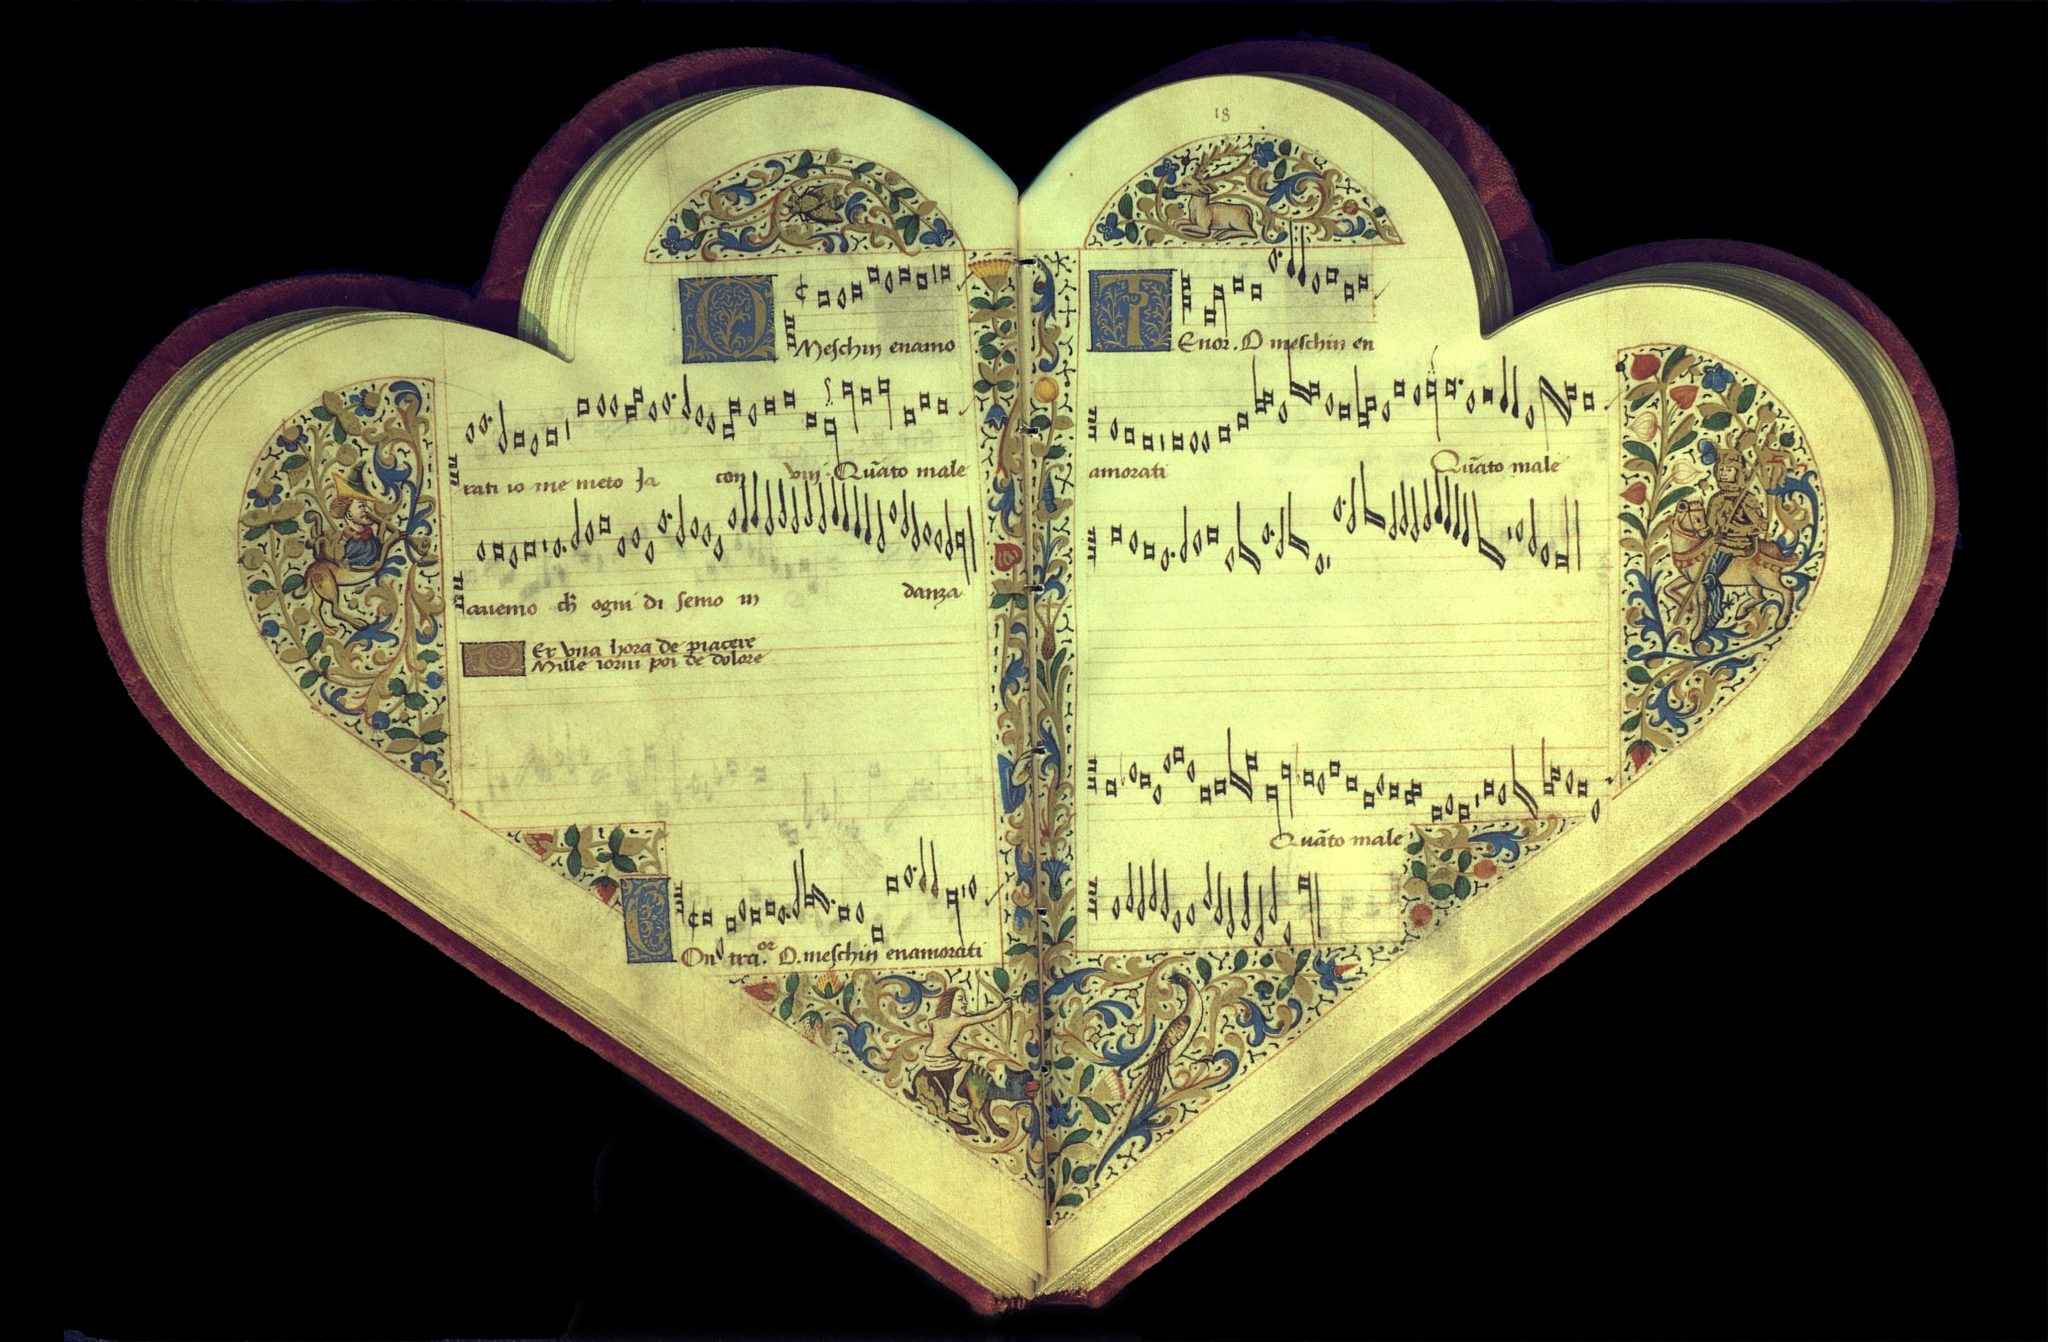 O Meschin enamo
rati io me meto Ja con vui. Quāto male
auemo ch̄ ogni di semo in danza
Per vna hora de piacere
Mille iorni poi de dolore
Contra.or O. meschin enamorati
18
TEnor. O meschin en
amorati Quāto male
Quāto male